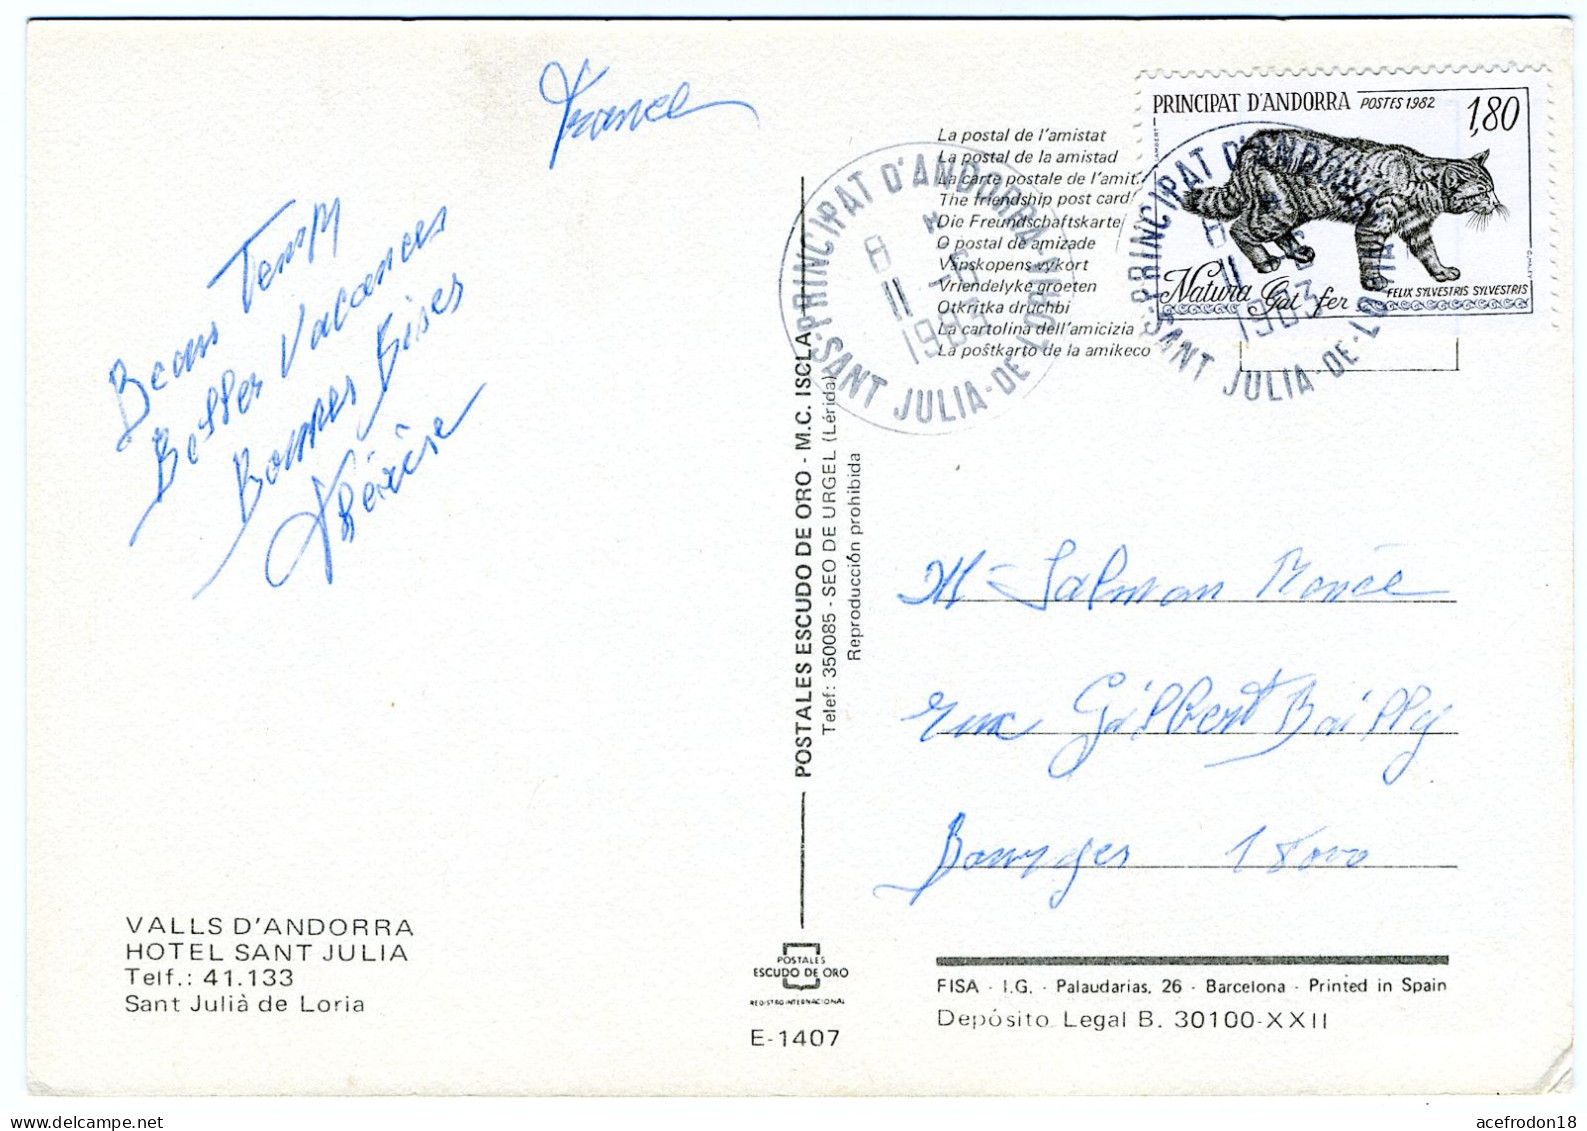 France
Beau Temps
Belles Vacances
Bonnes Bises
Thérèse
VALLS D'ANDORRA
HOTEL SANT JULIA
Telf.: 41.133
Sant Julià de Loria
POSTALES ESCUDO DE ORO - M.C. ISCLA
Telef: 350085 - SEO DE URGEL (Lérida)
Reproducción prohibida
POSTALES
ESCUDO DE ORO
REGISTRO INTERNACIONAL
E-1407
La postal de l'amistat
La postal de la amistad
La carte postale de l'amit.
The friendship post card
Die Freundschaftskarte
O postal de amizade
Vänskopens vykort
Vriendelyke groeten
Otkritka druchbi
La cartolina dell'amicizia
La poŝtkarto de la amikeco
PRINCIPAT D'ANDORRA
SANT JULIA-DE-LORIA
8 11
1983
PRINCIPAT D'ANDORRA POSTES 1982 1,80
Natura Gat fer FELIX SYLVESTRIS SYLVESTRIS
PRINCIPAT D'ANDORRA
SANT JULIA-DE-LORIA
8 11
1983
M Salmon
rue Gilbert Bailly
Bourges 18000
FISA - I.G. - Palaudarias, 26 - Barcelona - Printed in Spain
Depósito Legal B. 30100-XXII
acefrodon18